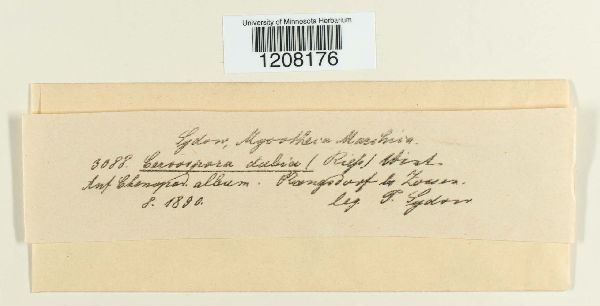 University of Minnesota Herbarium
1208176
Sydow, Mycotheca Marchica.
3088. Cercospora dubia (Riess) Wint.
Auf Chenopod. album. Rangsdorf b. Zossen.
8. 1890. leg. P. Sydow